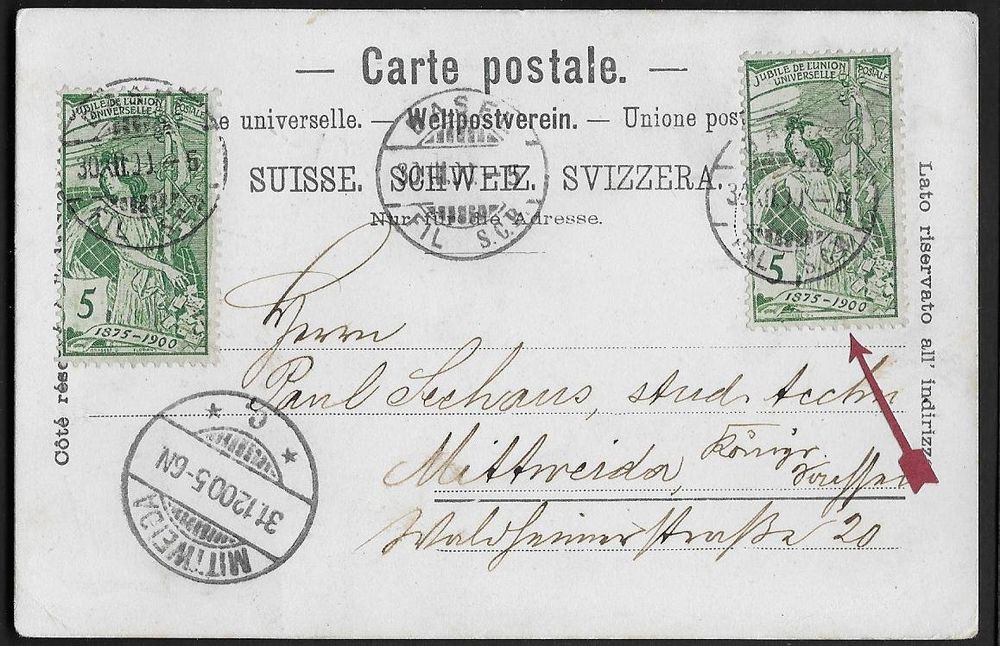 — Carte postale. —
e universelle. — Weltpostverein. — Unione pos
SUISSE. SCHWEIZ. SVIZZERA.
Nur für die Adresse.
JUBILÉ DE L'UNION
UNIVERSELLE POSTALE
5
1875-1900
JUBILÉ DE L'UNION
UNIVERSELLE POSTALE
5
1875-1900
30.XII.00.-5
FIL
BASEL
30.XII.00.-5
FIL S.C.B.
30.XII.00.-5
FIL
Côté rése
Lato riservato all' indirizz
Herrn
Paul Seehaus, stud techn
Mittweida, Königr.
Sachsen
Waldheimerstraße 20
MITTWEIDA
31.12.00.5-6N
* c *